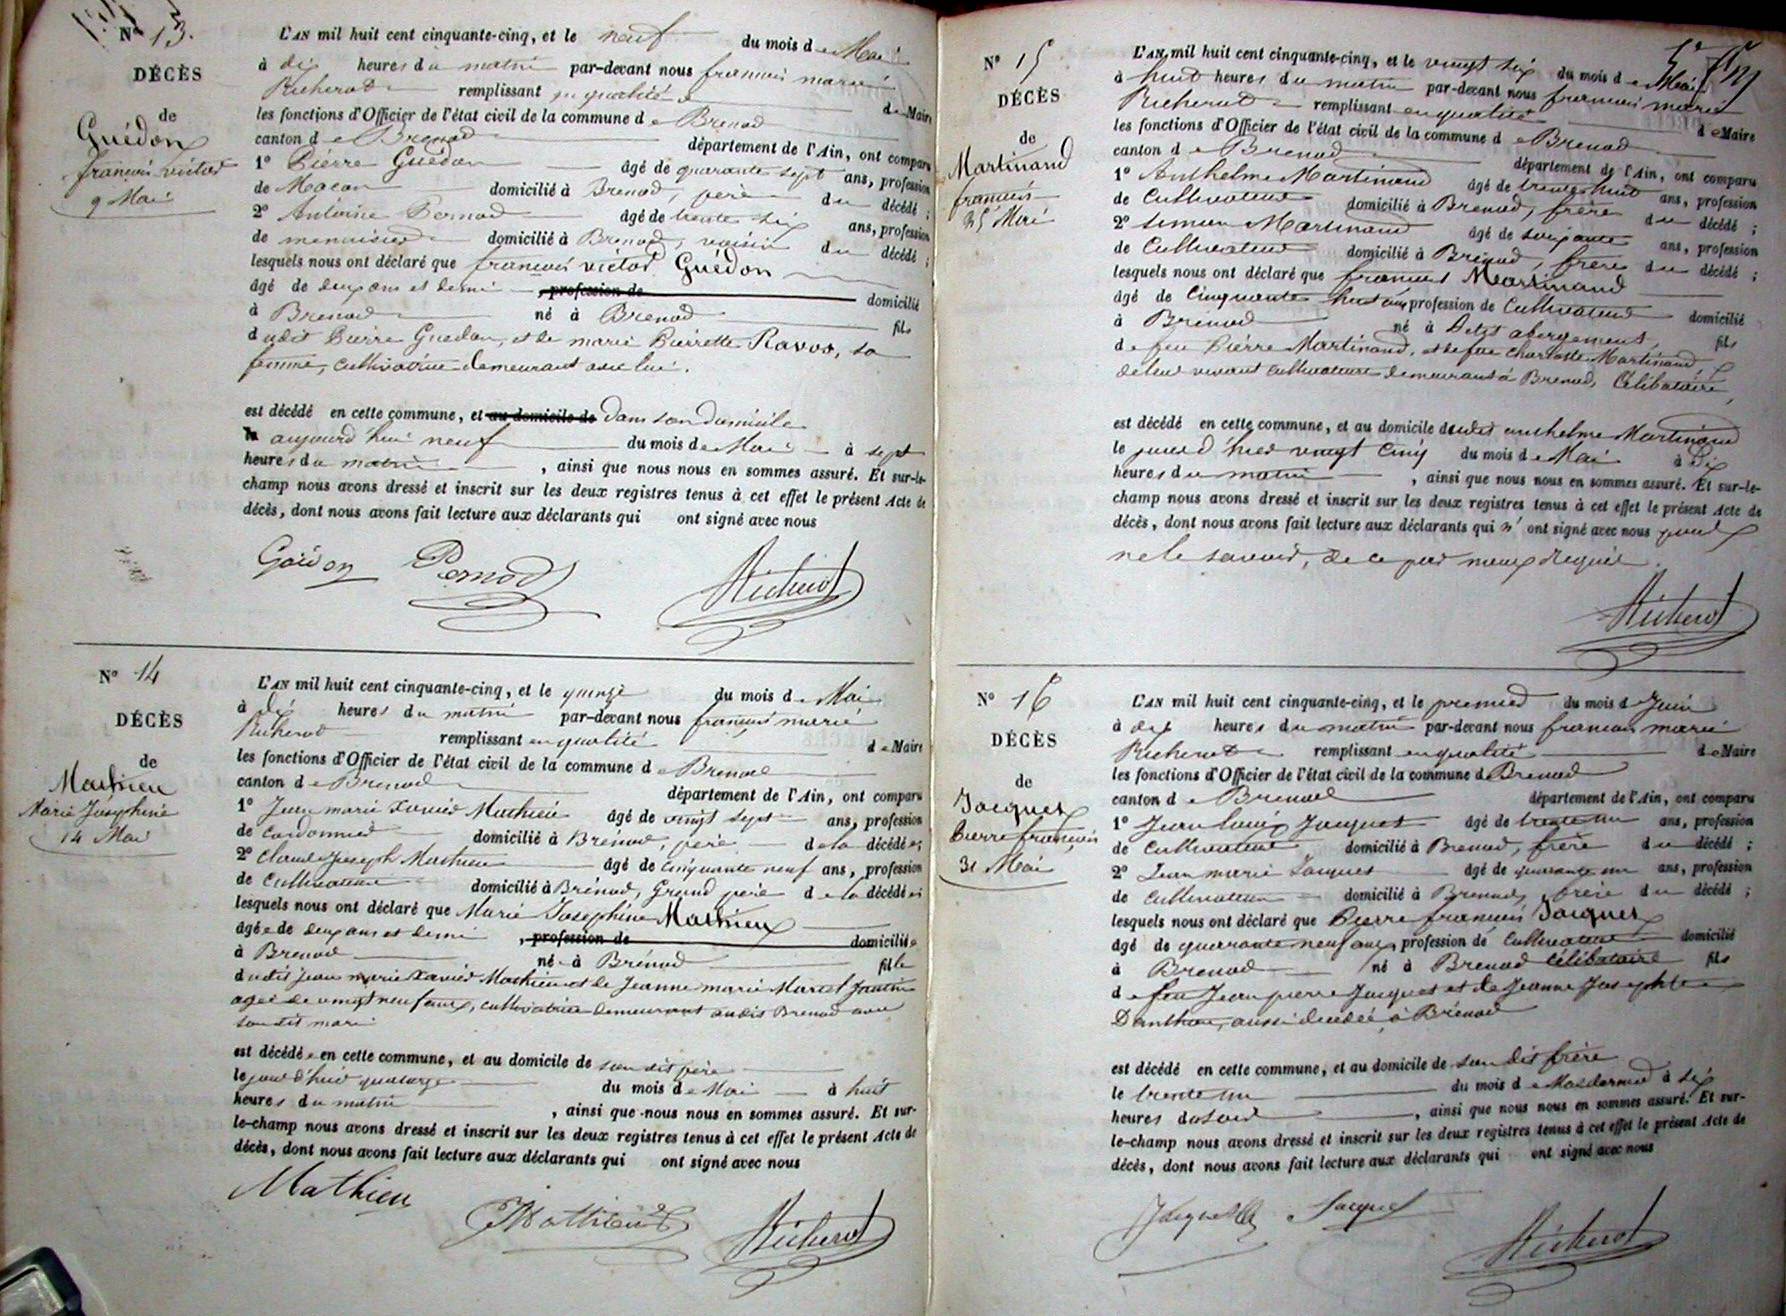 N° 13.
DÉCÈS
de
Guédon
françois victor
9 Mai
L'AN mil huit cent cinquante-cinq, et le neuf du mois de Mai
à dix heures du matin par-devant nous françois marie
Richerot remplissant en qualité de Maire
les fonctions d'Officier de l'état civil de la commune de Brenod
canton de Brenod département de l'Ain, ont comparu
1° Pierre Guédon âgé de quarante sept ans, profession
de Macon domicilié à Brenod, père du décédé ;
2° Antoine Pernod âgé de trente six ans, profession
de menuisier domicilié à Brenod, voisin du décédé ;
lesquels nous ont déclaré que françois victor Guédon
âgé de deux ans et demi , profession de domicilié
à Brenod né à Brenod fils
dudit Pierre Guédon, et de marie Pierrette Ravos, sa
femme, cultivatrice demeurant avec lui.
est décédé en cette commune, et au domicile de dans son domicile
aujourd'hui neuf du mois de Mai à sept
heures du matin , ainsi que nous nous en sommes assuré. Et sur-le-
champ nous avons dressé et inscrit sur les deux registres tenus à cet effet le présent Acte de
décès, dont nous avons fait lecture aux déclarants qui ont signé avec nous
Guédon Pernod Richerot
N° 14
DÉCÈS
de
Mathieu
Marie Joséphine
14 Mai
L'AN mil huit cent cinquante-cinq, et le quinze du mois de Mai
à dix heures du matin par-devant nous françois marie
Richerot remplissant en qualité de Maire
les fonctions d'Officier de l'état civil de la commune de Brenod
canton de Brenod département de l'Ain, ont comparu
1° Jean marie Xavier Mathieu âgé de vingt sept ans, profession
de Cordonnier domicilié à Brénod, père de la décédée;
2° Claude Joseph Mathieu âgé de cinquante neuf ans, profession
de Cultivateur domicilié à Brénod, Grand père de la décédée;
lesquels nous ont déclaré que Marie Joséphine Mathieu
âgée de deux ans et demi , profession de domiciliée
à Brenod née à Brénod fille
dudit jean marie Xavier Mathieu et de Jeanne marie Martel
agée de vingt neuf ans, cultivatrice demeurant audit Brenod avec
son dit mari
est décédée en cette commune, et au domicile de son dit père
le jour d'hier quatorze du mois de Mai à huit
heures du matin , ainsi que nous nous en sommes assuré. Et sur-
le-champ nous avons dressé et inscrit sur les deux registres tenus à cet effet le présent Acte de
décès, dont nous avons fait lecture aux déclarants qui ont signé avec nous
Mathieu Mathieu Richerot
N° 15
DÉCÈS
de
Martinand
françois
25 Mai
L'AN mil huit cent cinquante-cinq, et le vingt six du mois de Mai
à huit heures du matin par-devant nous françois marie
Richerot remplissant en qualité de Maire
les fonctions d'Officier de l'état civil de la commune de Brenod
canton de Brenod département de l'Ain, ont comparu
1° Anthelme Martinand âgé de trente huit ans, profession
de Cultivateur domicilié à Brenod, frère du décédé ;
2° simon Martinand âgé de soixante ans, profession
de Cultivateur domicilié à Brenod, frère du décédé ;
lesquels nous ont déclaré que françois Martinand
âgé de Cinquante huit ans profession de Cultivateur domicilié
à Brenod né à petit abergement, fils
de feu Pierre Martinand, et de feue charlotte Martinand,
de leur vivant cultivateurs demeurant à Brenod, Célibataire,
est décédé en cette commune, et au domicile dudit anthelme Martinand
le jour d'hier vingt cinq du mois de Mai à dix
heures du matin , ainsi que nous nous en sommes assuré. Et sur-le-
champ nous avons dressé et inscrit sur les deux registres tenus à cet effet le présent Acte de
décès, dont nous avons fait lecture aux déclarants qui n'ont signé avec nous pour
ne le savoir, de ce par nous requis.
Richerot
N° 16
DÉCÈS
de
Jacquet
Pierre françois
31 Mai
L'AN mil huit cent cinquante-cinq, et le premier du mois de Juin
à dix heures du matin par-devant nous francois marie
Richerot remplissant en qualité de Maire
les fonctions d'Officier de l'état civil de la commune de Brenod
canton de Brenod département de l'Ain, ont comparu
1° Jean louis Jacquet âgé de trente un ans, profession
de Cultivateur domicilié à Brenod, frère du décédé ;
2° Jean marie Jacquet âgé de quarante un ans, profession
de Cultivateur domicilié à Brenod, frère du décédé ;
lesquels nous ont déclaré que Pierre françois Jacquet
âgé de quarante neuf ans, profession de Cultivateur domicilié
à Brenod né à Brenod célibataire fils
de feu Jean pierre Jacquet et de Jeanne Josephte
aussi decédée à Brénod
est décédé en cette commune, et au domicile de son dit frère
le trente un du mois de Mai dernier à six
heures du soir , ainsi que nous nous en sommes assuré. Et sur-
le-champ nous avons dressé et inscrit sur les deux registres tenus à cet effet le présent Acte de
décès, dont nous avons fait lecture aux déclarants qui ont signé avec nous
Jacquet Jacquet Richerot